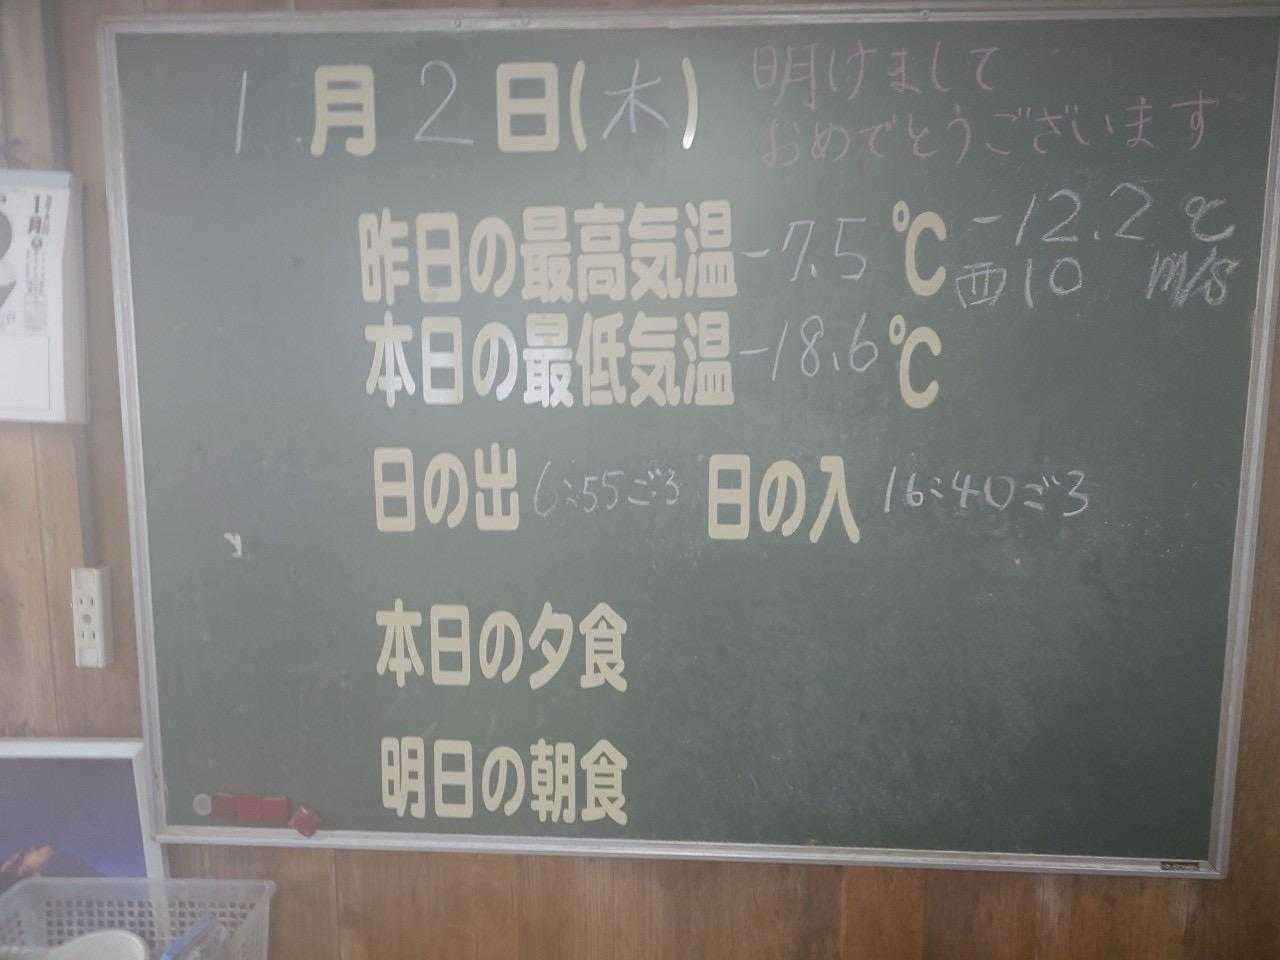 1月2日(木)
明けまして
おめでとうございます
昨日の最高気温 -7.5℃
-12.2℃
西10 m/s
本日の最低気温 -18.6℃
日の出 6:55ごろ 日の入 16:40ごろ
本日の夕食
明日の朝食